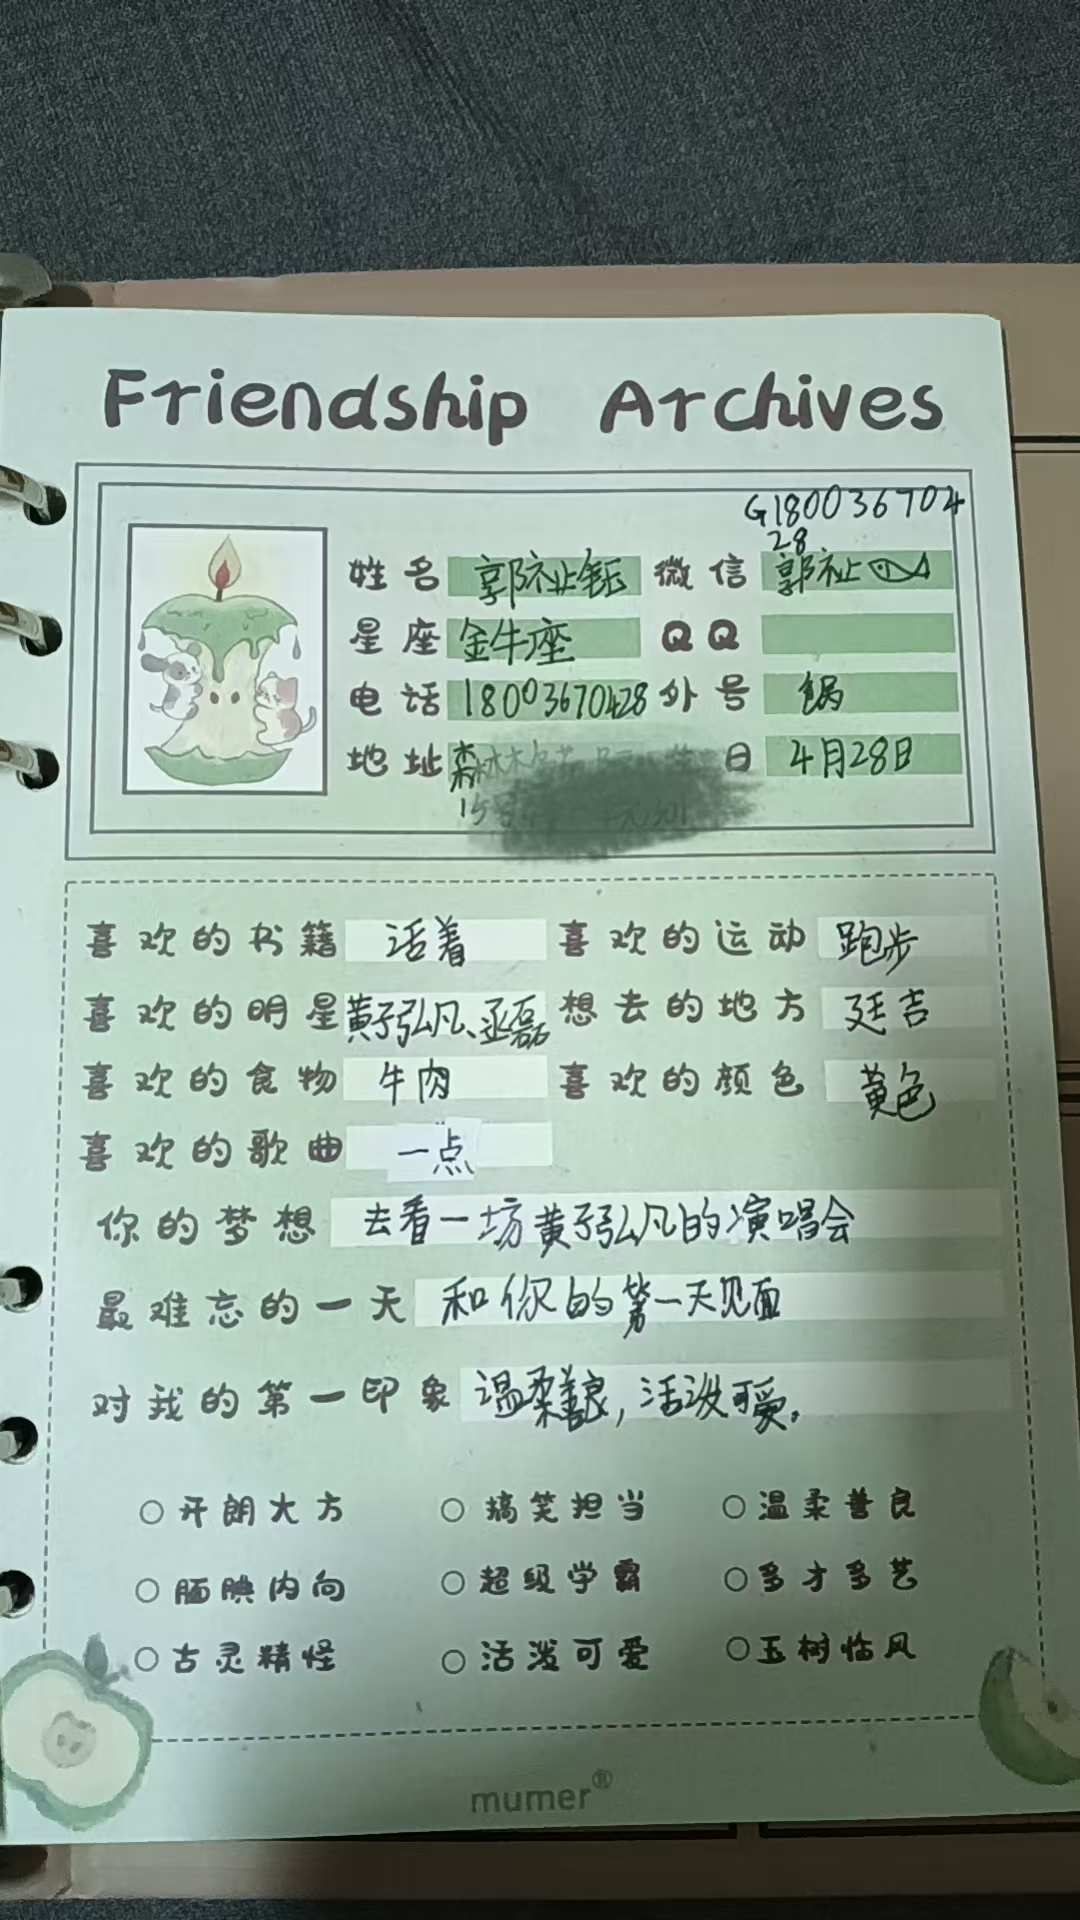 Friendship Archives
G180036704
28
姓名 郭祉鈺 微信 郭祉
星座 金牛座 QQ
电话 18003670428 外号 锅
地址 森林 日 4月28日
15 301
喜欢的书籍 活着 喜欢的运动 跑步
喜欢的明星 黄子弘凡、丞磊 想去的地方 延吉
喜欢的食物 牛肉 喜欢的颜色 黄色
喜欢的歌曲 一点
你的梦想 去看一坊黄子弘凡的演唱会
最难忘的一天 和你的第一天见面
对我的第一印象 温柔善良，活泼可爱。
开朗大方 搞笑担当 温柔善良
腼腆内向 超级学霸 多才多艺
古灵精怪 活泼可爱 玉树临风
mumer®